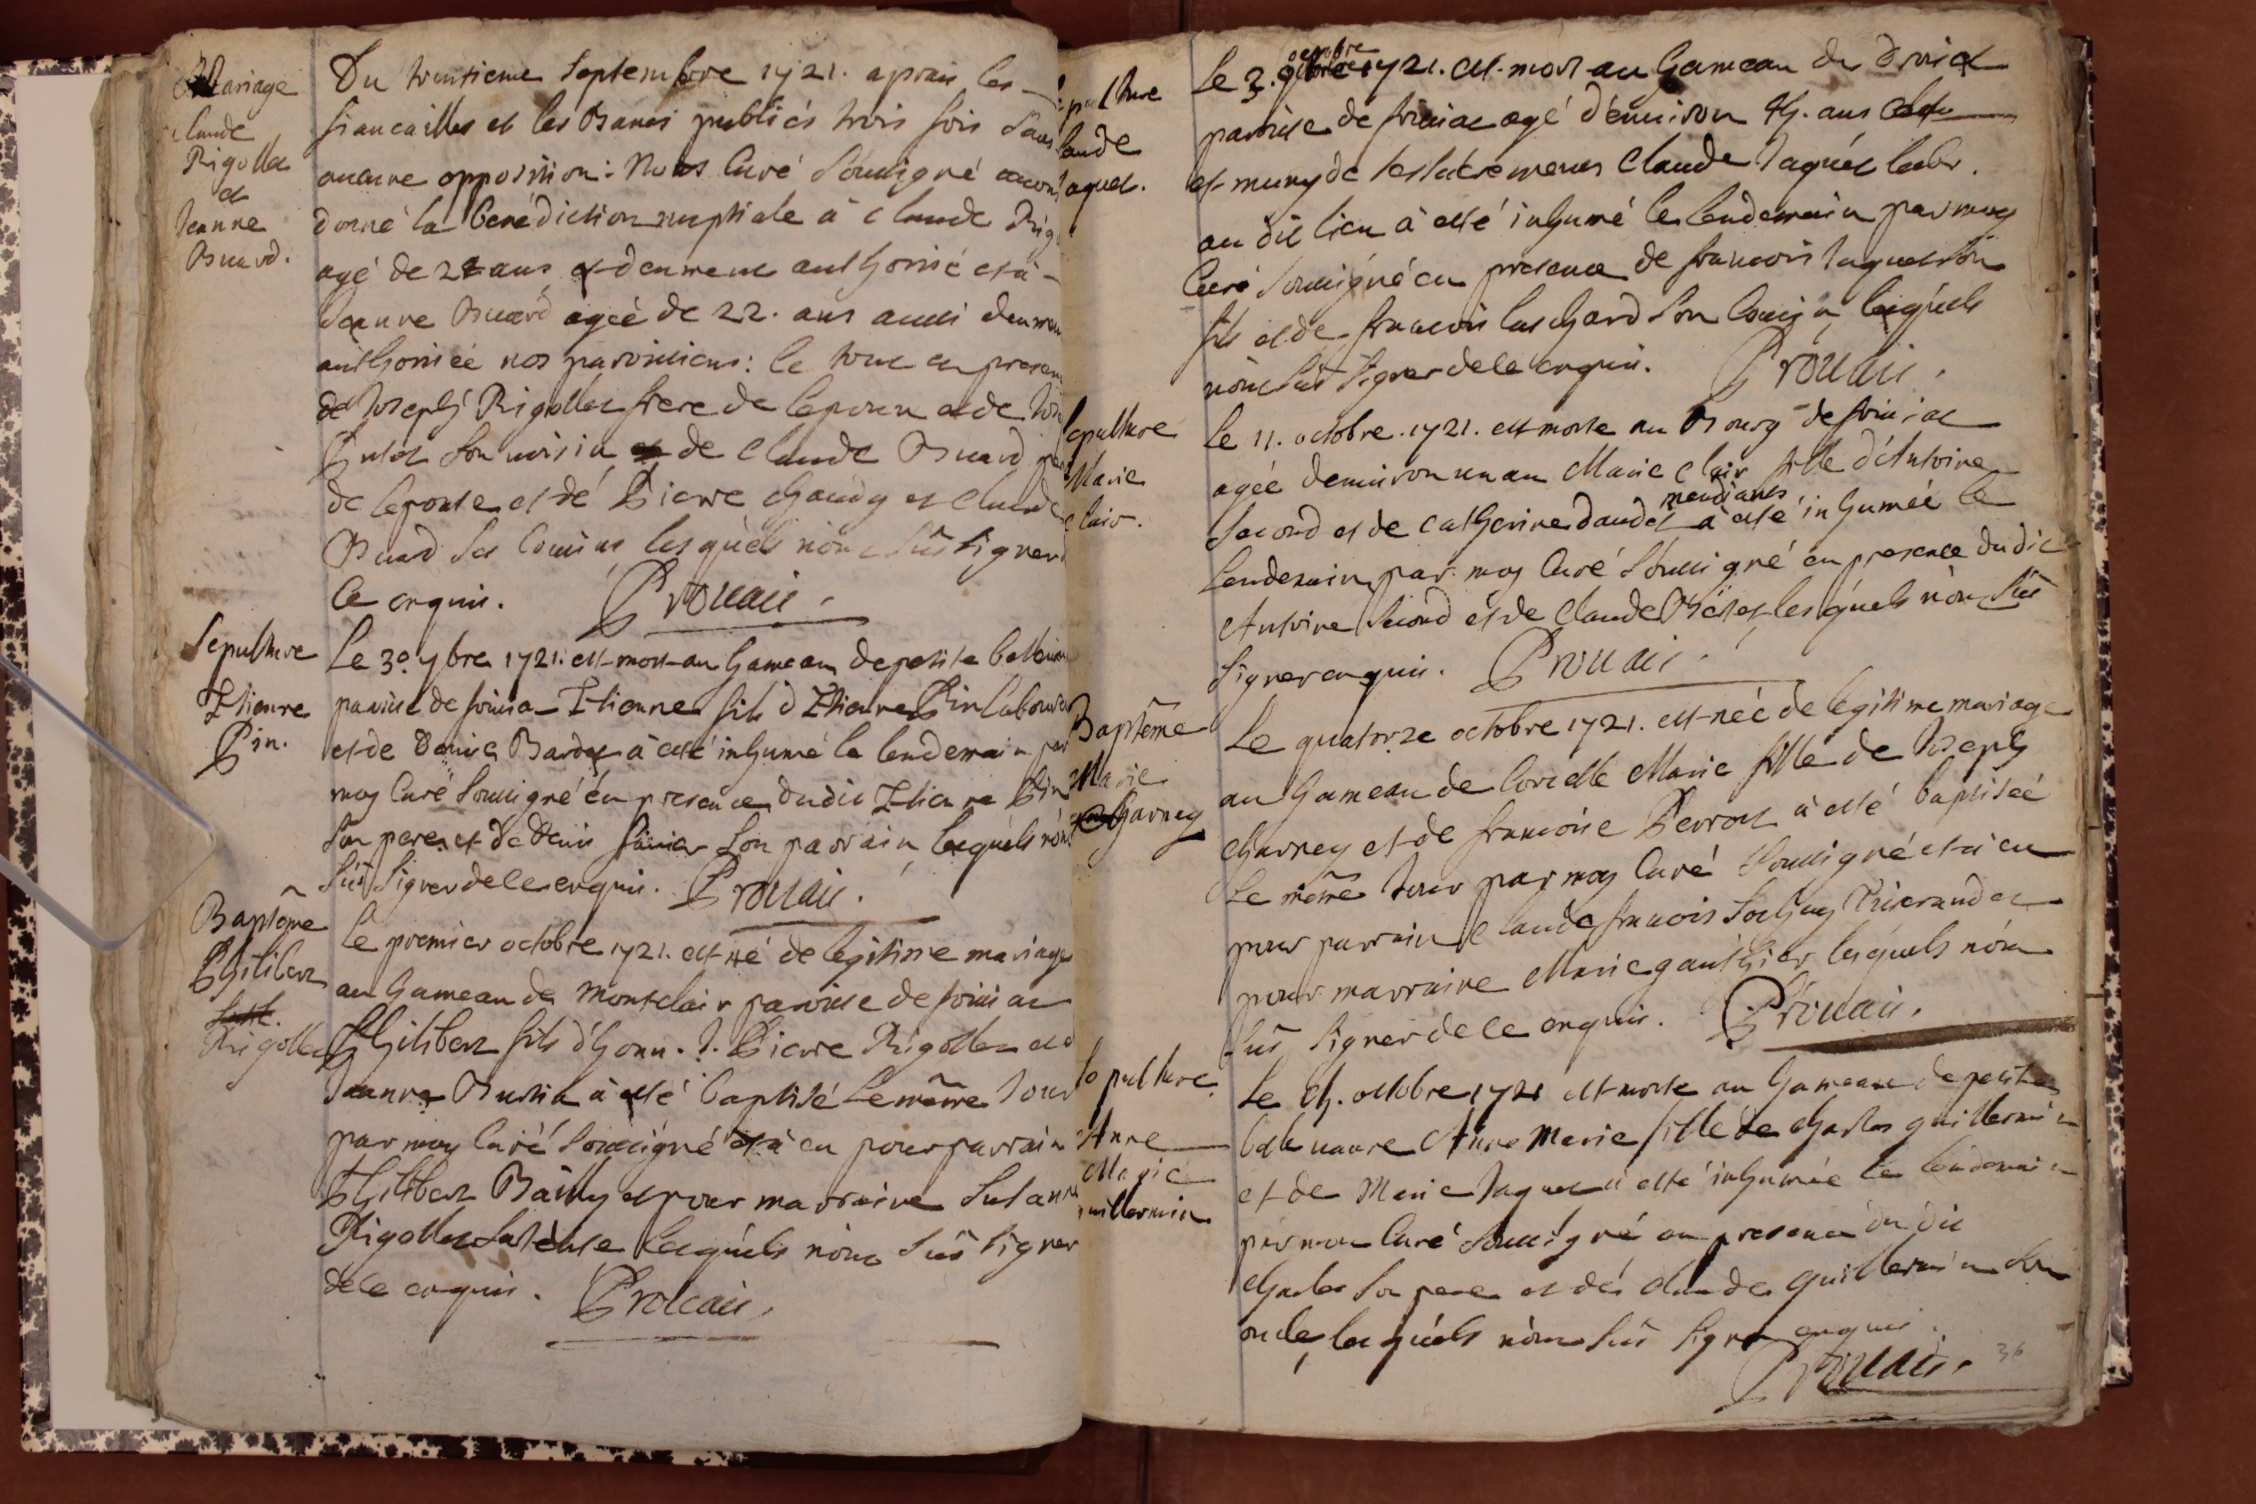 Mariage
Claude
Rigollet
et
Jeanne
Buard.
Du trentieme Septembre 1721. aprais les
fiancailles et les Bancs publiés trois fois Sans
aucune opposition: Nous Curé Soussigné avons
donné la benediction nuptiale à Claude Rig
agé de ans et deument authorisé et à
Jeanne Buard agéé de 22. ans aussi deumen
authoriséé nos paroissiens: le tout en presen
de Joseph Rigollet frere de lepoux et de
son voisin de Claude Buard
de lepouse et dé Pierre Chandy et Claude
Buard Ses Cousins lesquèls nònt Sûs Signer
Ce enquis. Prouais.
Sepulture
Etienne
Pin.
Le 30. 7bre 1721. est mort au hameau de petite
paroisse de Etienne fils d'Etienne Pin Laboureur
et de Denise Bardet à esté inhumé le lendemain par
moy Curé Soussigné en presence dudit Etienne Pin
Son pere et de Denis Son parrain lesquèls nònt
Sûs Signer de ce enquis. Prouais.
Baptême
Philibert
Rigollet
Le premier octobre 1721. est né de legitime mariage
au hameau de Montclair paroisse de
Philibert fils d'honn. Pierre Rigollet et d
Jeanne à esté baptisé Le même Jour
par moy Curé Soussigné et à eu pour parrain
Philibert Bailly et pour marraine Susanne
Rigollet lesquéls nònt Sûs Signer
de ce enquis. Prouais.
Sepulture
Claude
Jaquet.
Le 3. octobre 1721. est mort au hameau du
paroisse de agé d'environ 45. ans
et muny de ses Sacremens Claude Jaquet labr.
au dit lieu à esté inhumé le lendemain par moy
Curé Soussigné en presence de francois Jaquet Son
fils et de francois Son Cousin lesquéls
nònt Sûs Signer de ce enquis. Prouais.
Sepulture
Marie
Clair.
Le 11. octobre. 1721. est morte au Bourg de
agéé d'environ un an Marie Clair fille d'Antoine
Second et de Catherine Daudet mendiants à esté inhuméé le
lendemain par moy Curé Soussigné en presence dudit
Antoine Second et de Claude lesquels nònt Sûs
Signer enquis. Prouais.
Baptême
Marie
Charney
Le quatorze octobre 1721. est néé de legitime mariage
au hameau de Marie fille de Joseph
Charney et de francoise Perrot à esté baptiséé
Le même Jour par moy Curé Soussigné et à eu
pour parrain Claude francois et
pour marraine Marie gauthier lesquels nònt
Sûs Signer de ce enquis. Prouais.
Sepulture.
Anne
Marie
Guillermin
Le octobre 1721 est morte au hameau de petite
Anne Marie fille de Charles guillermin
et de Marie Jaquet à esté inhumée le lendemain
par moy Curé Soussigné en presence du dit
Charles Son pere et dé Claude guillermin Son
oncle, lesquéls nònt Sûs Signer enquis.
Prouais.
36